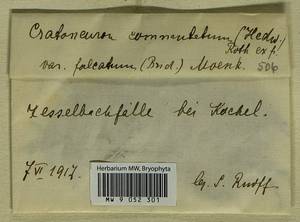 Cratoneuron commutatum (Hedw.)
Roth ex p.
var. falcatum (Brid.) Moenk. 506
Jesselbachfälle bei Kochel.
7 VI 1917. lg. S. Ruoff
Herbarium MW, Bryophyta
MW 9 052 301